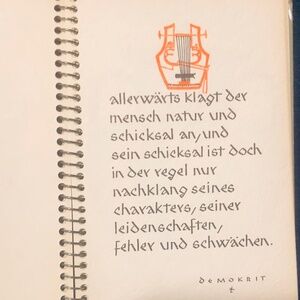 allerwärts klagt der
mensch natur und
schicksal an, und
sein schicksal ist doch
in der regel nur
nachklang seines
charakters, seiner
leidenschaften,
fehler und schwächen.
DEMOKRIT